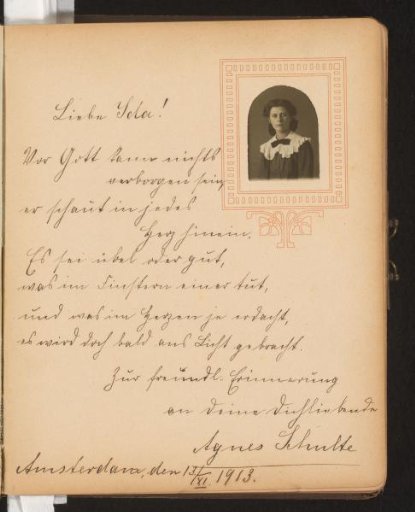 Liebe Seta!
Vor Gott kann nichts
verborgen sein
er schaut in jedes
Herz hinein.
Es sei übel oder gut,
was im Finstern einer tut,
und was im Herzen je erdacht,
es wird doch bald ans Licht gebracht.
Zur freundl. Erinnerung
an Deine Dichliebende
Agnes Schulte
Amsterdam, den /XI 1913.